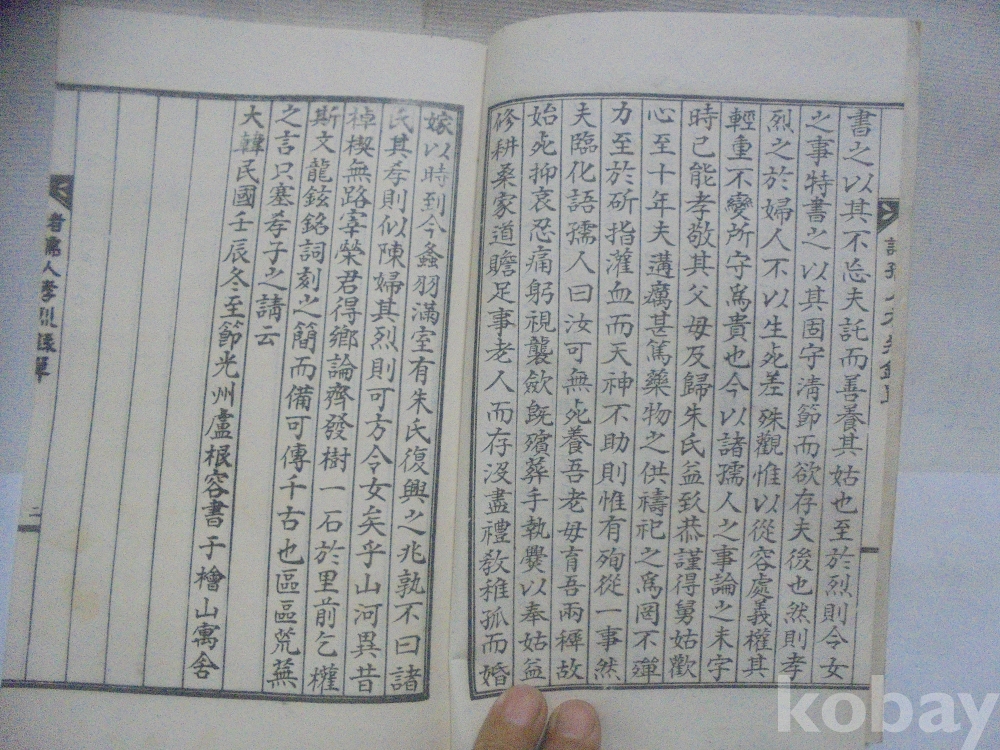 書之以其不忘夫託而善養其姑也至於烈則令女
之事特書之以其固守淸節而欲存夫後也然則孝
烈之於婦人不以生死差殊觀惟以從容處義權其
輕重不變所守爲貴也今以諸孺人之事論之未字
時已能孝敬其父母及歸朱氏益致恭謹得舅姑歡
心至十年夫遘癘甚篤藥物之供禱祀之爲罔不殫
力至於斫指灌血而天神不助則惟有殉從一事然
夫臨化語孺人曰汝可無死養吾老母育吾兩穉故
始死抑哀忍痛躬視襲斂旣殯葬手執爨以奉姑益
修耕桑家道贍足事老人而存沒盡禮敎稚孤而婚
嫁以時到今螽羽滿室有朱氏復興之兆孰不曰諸
氏其孝則似陳婦其烈則可方令女矣乎山河異昔
棹楔無路宰榮君得鄕論齊發樹一石於里前乞權
斯文龍鉉銘詞刻之簡而備可傳千古也區區荒蕪
之言只塞孝子之請云
大韓民國壬辰冬至節光州盧根容書于檜山寓舍
二
kobay